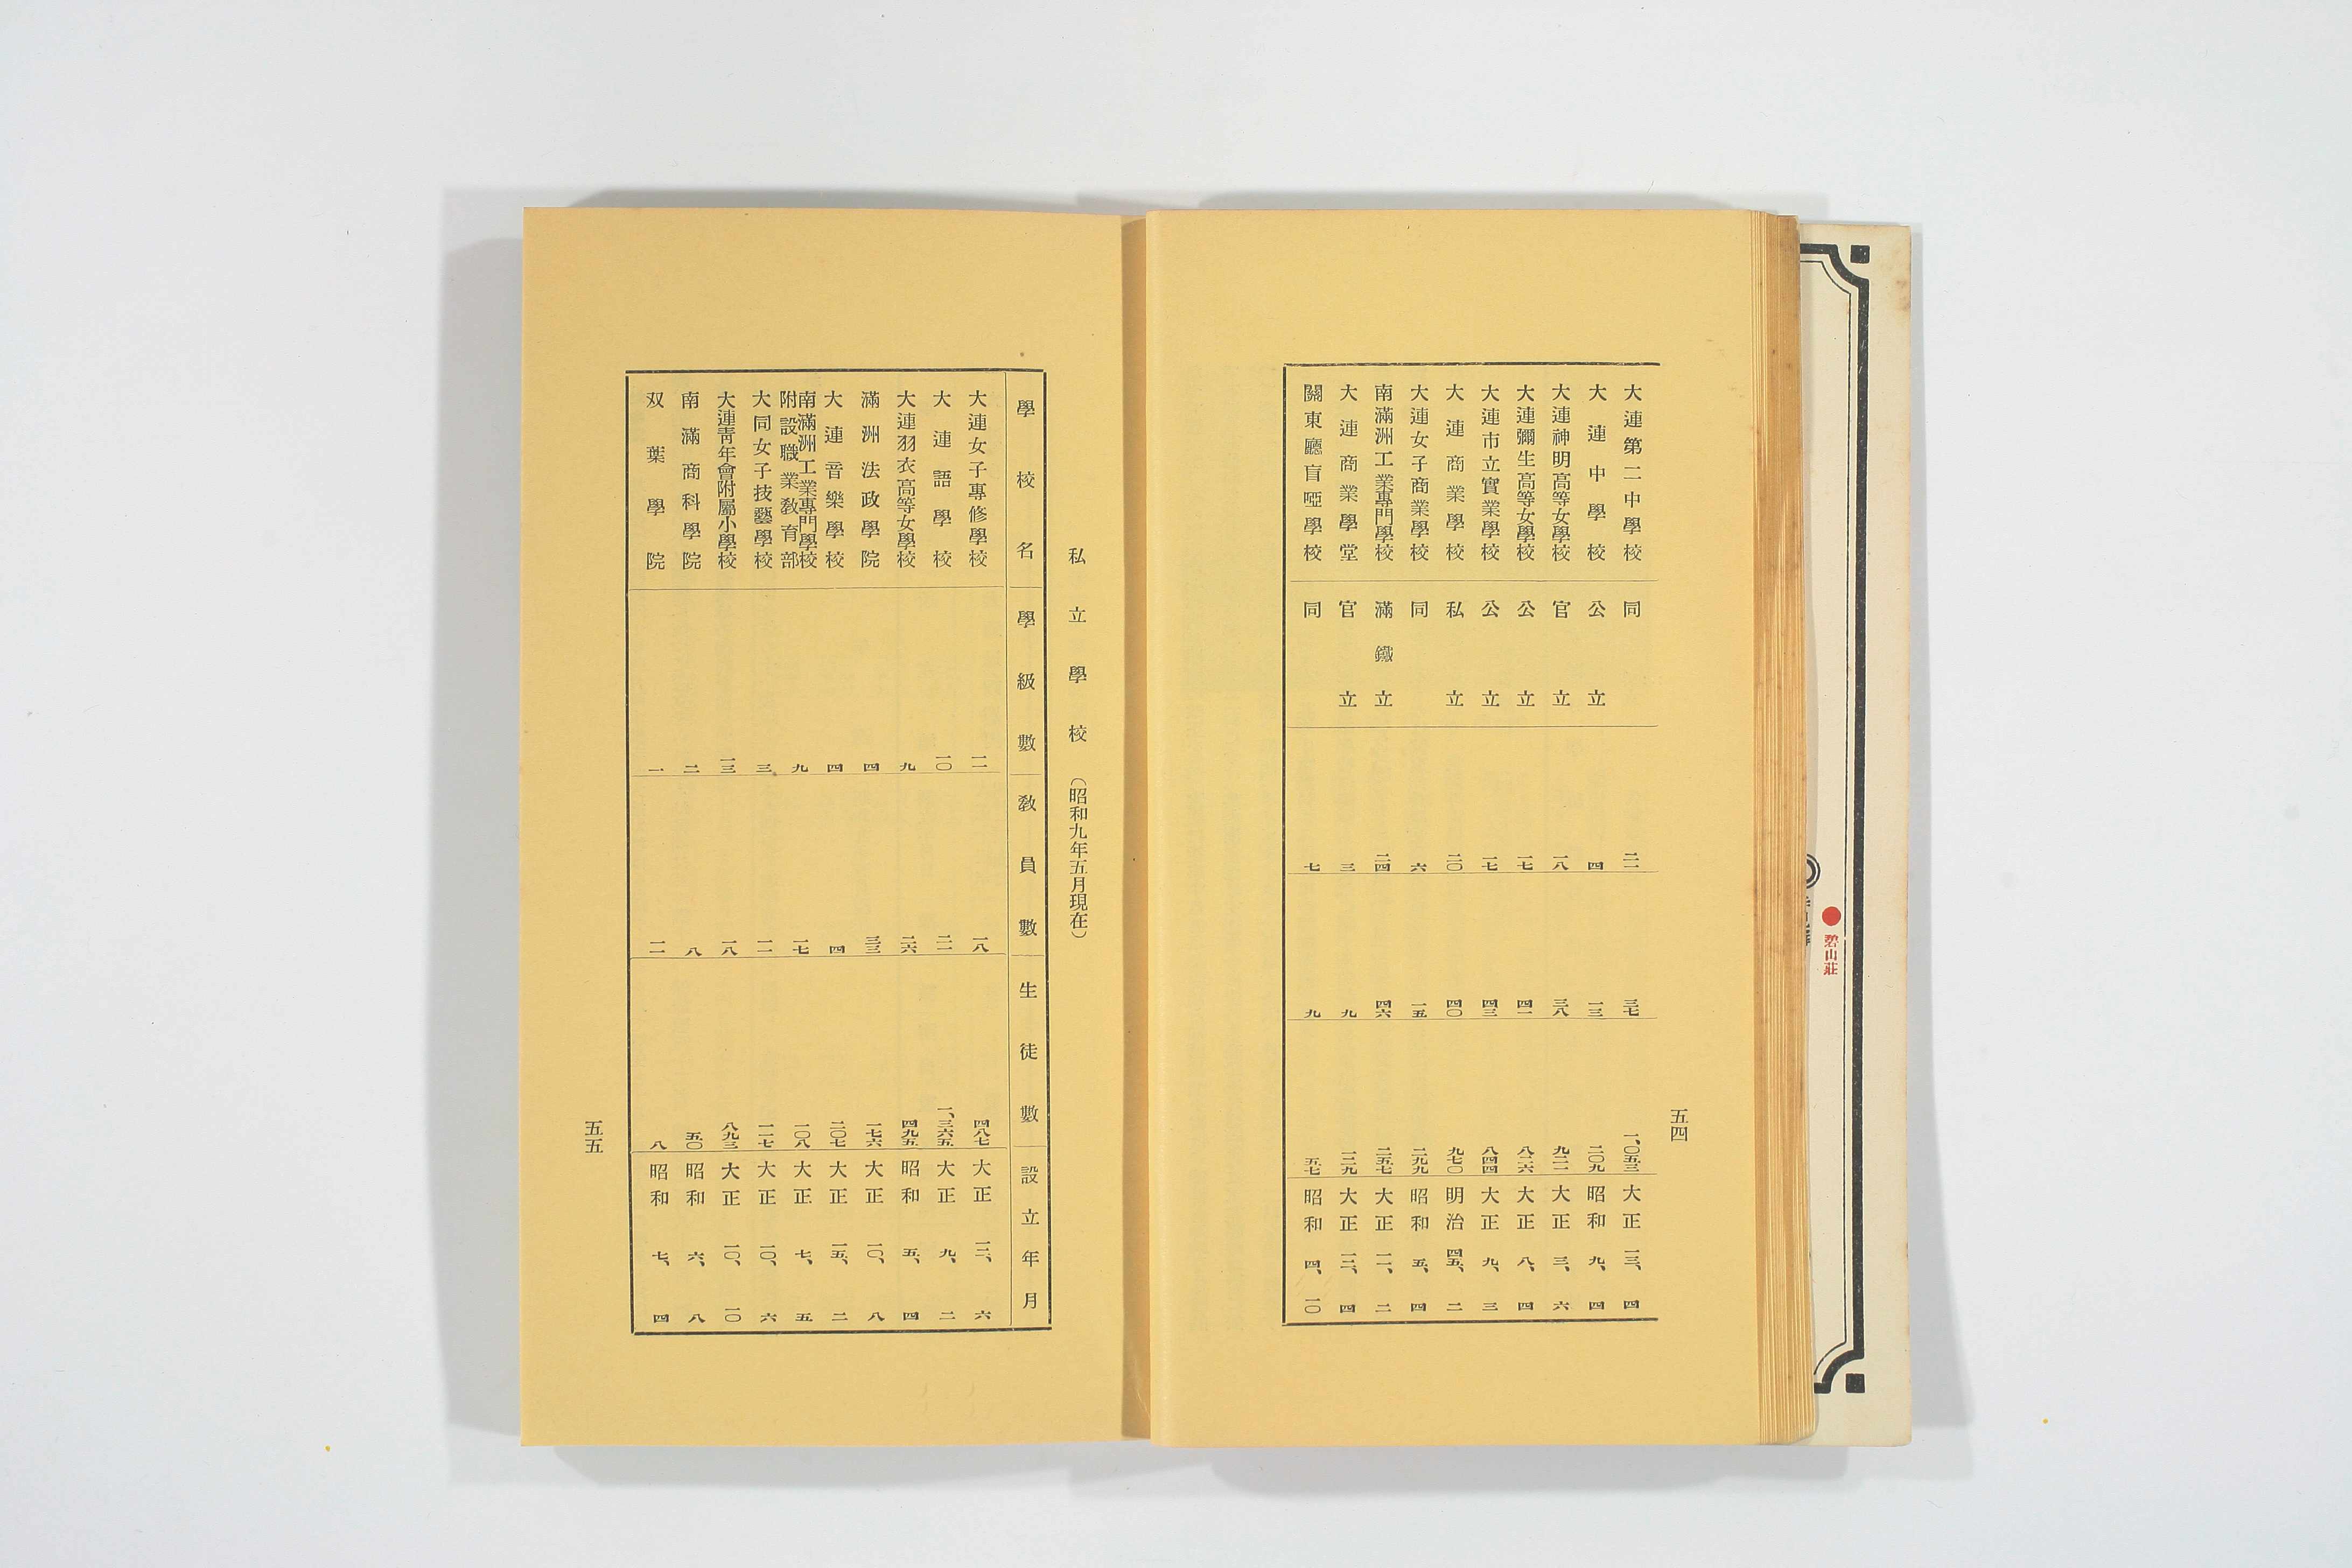 五四
大連第二中學校 同 二一 三七 一、〇五三 大正 一三、四
大連中學校 公立 四 一三 二〇九 昭和 九、四
大連神明高等女學校 官立 一八 三八 九二一 大正 三、六
大連彌生高等女學校 公立 一七 四一 八二六 大正 八、四
大連市立實業學校 公立 一七 四三 八四四 大正 九、三
大連商業學校 私立 二〇 四〇 九七〇 明治 四五、二
大連女子商業學校 同 六 一五 二九九 昭和 五、四
南滿洲工業專門學校 滿鐵立 二四 四六 二五七 大正 一一、二
大連商業學堂 官立 三 九 一二九 大正 一二、四
關東廳盲啞學校 同 七 九 五七 昭和 四、一〇
私立學校(昭和九年五月現在)
學校名 學級數 教員數 生徒數 設立年月
大連女子專修學校 一一 一八 四八七 大正 一二、六
大連語學校 一〇 二一 一、三六五 大正 九、二
大連羽衣高等女學校 九 二六 四九五 昭和 五、四
滿洲法政學院 四 三三 一七六 大正 一〇、八
大連音樂學校 四 四 二〇七 大正 一五、二
南滿洲工業專門學校
附設職業教育部 九 一七 一〇八 大正 七、五
大同女子技藝學校 三 一一 一一七 大正 一〇、六
大連靑年會附屬小學校 一三 一八 八九三 大正 一〇、一〇
南滿商科學院 二 八 五〇 昭和 六、八
双葉學院 一 一一 八 昭和 七、四
五五
碧山莊